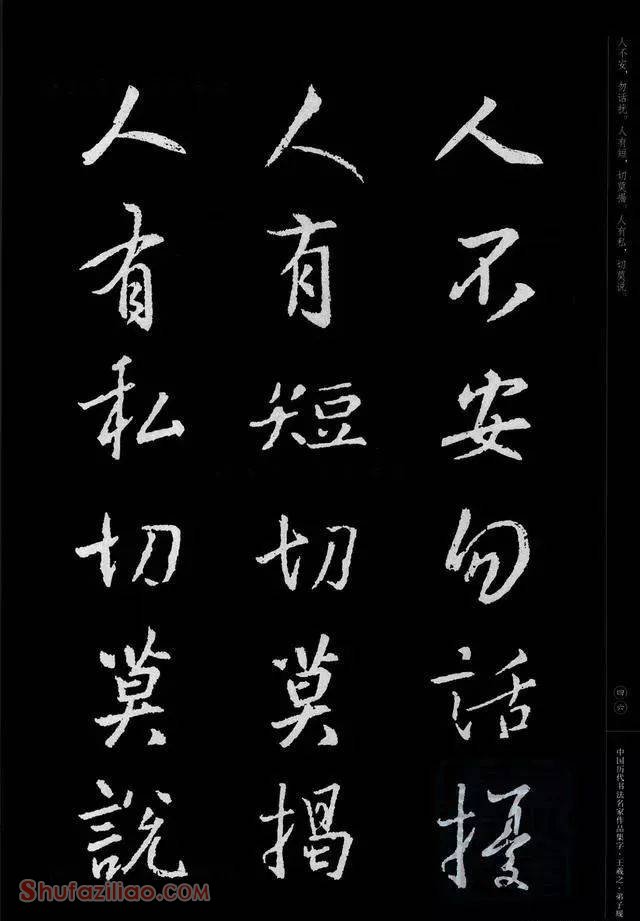 人不安勿話擾
人有短切莫揭
人有私切莫說
人不安，勿话扰。人有短，切莫揭。人有私，切莫说。
四六
中国历代书法名家作品集字·王羲之·弟子规
Shufaziliao.com